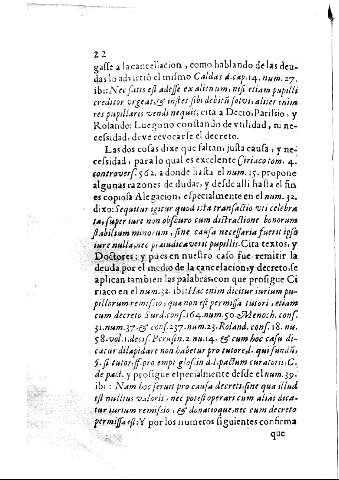 22
gasse a la cancellacion, como hablando de las deu-
das lo advirtió el mismo Caldas d.cap. 14. num. 27.
ibi: Nec satis est adesse ex alienum, nisi etiam pupilli
creditor urgeat, & instet sibi debitū solvi, aliter enim
res pupillares vendi nequit; cita a Decio, Parisio, y
Rolando: Luego no constando de vtilidad, ni ne-
cessidad, deve revocarse el decreto.
Las dos cosas dixe faltan, justa causa, y ne-
cessidad, para lo qual es excelente Ciriaco tom. 4.
controvers. 562. a donde hasta el num. 25. propone
algunas razones de dudar, y desde alli hasta el fin
es copiosa Alegacion, especialmente en el num. 32.
dixo: Sequitur igitur quod ista transactio vti celebra
ta, super iure non obscuro cum distractione bonorum
stabilium minorum, sine causa necessaria fuerit ipso
iure nulla, nec praiudicaverit pupillis. Cita textos, y
Doctores: y pues en nuestro caso fue remitir la
deuda por el medio de la cancelacion, y decreto, se
aplican tambien las palabras, con que prosigue Ci
riaco en el num. 32. ibi: Hac enim dicitur iurium pu-
pillorum remissio, qua non est permissa tutori, etiam
cum decreto Surd. cons. 164. num. 50. & Menoch. cons.
31. num. 37. & cons. 237. num. 23. Roland. cons. 18. nu.
58. vol. 1. decis. Perusin. 2. nu. 14. & cum hoc casu di-
catur dilapidare non habetur pro tutore, l. qui fundū,
§. si tutor, ff. pro empt. glos. in d. l. pactum curatoris, C.
de pact. y prosigue especialmente desde el num. 39.
ibi: Nam hoc feruit pro causa decreti, sine qua illud
est nullius valoris, nec potest operari cum alias dica-
tur iurium remissio, & donatio que, nec cum decreto
permissa est: Y por los numeros siguientes confirma
que